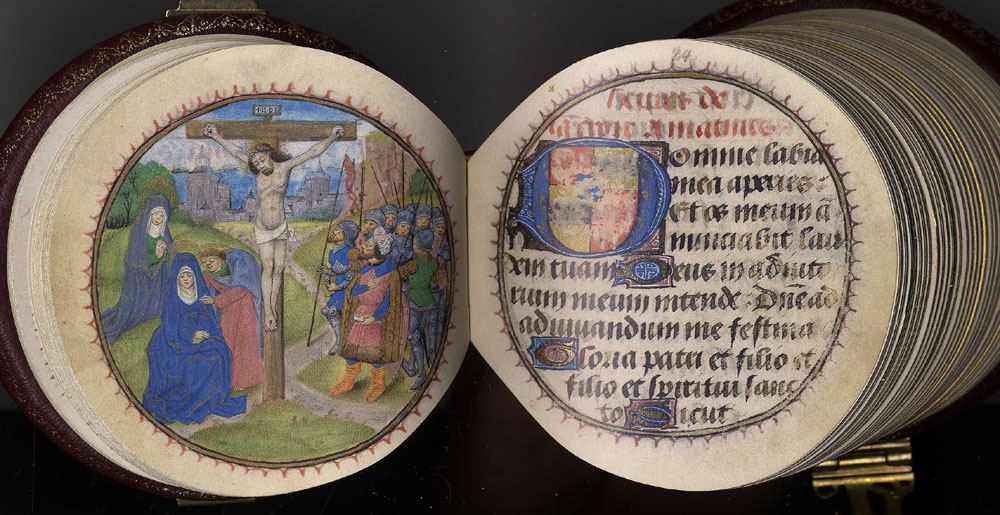 INRI
heures de
la croix a matines
Domine labia
mea aperies.
Et os meum ā
nunciabit lau
dem tuam Deus in adiuto
rium meum intende. Dn̄e ad
adiuuandum me festina
Gloria patri et filio et
filio et spiritui sanc
to Sicut